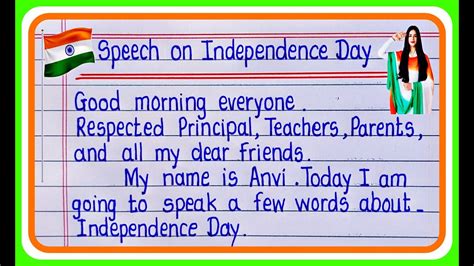 Speech on Independence Day
Good morning everyone.
Respected Principal, Teachers, Parents,
and all my dear friends.
My name is Anvi. Today I am
going to speak a few words about_
Independence Day.